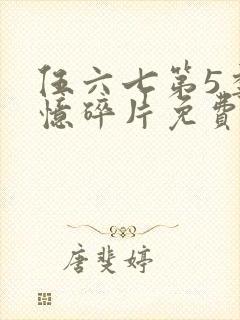 伍六七第5
憶碎片免費
唐斐婷